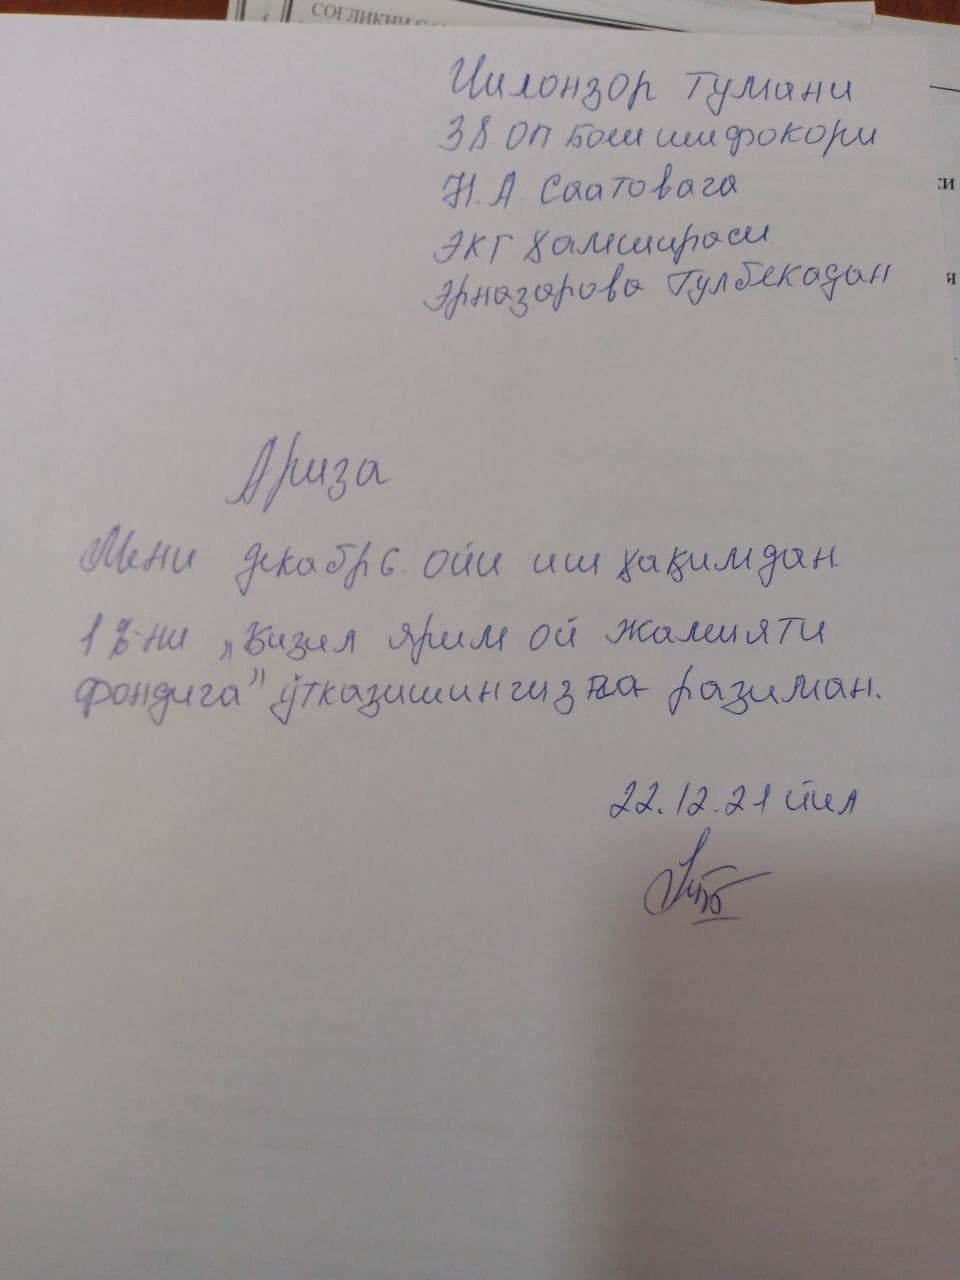 СОҒЛИҚНИ
ки
я
Чилонзор тумани
38 ОП Бош шифокори
Н.А. Саатовага
ЭКГ ҳамшираси
Эрназарова Гулбекадан
Ариза
Мени декабр 6. ойи иш ҳақимдан
1%-ни „Қизил ярим ой жамияти
фондига” ўтказишингизга розиман.
22.12.21 йил